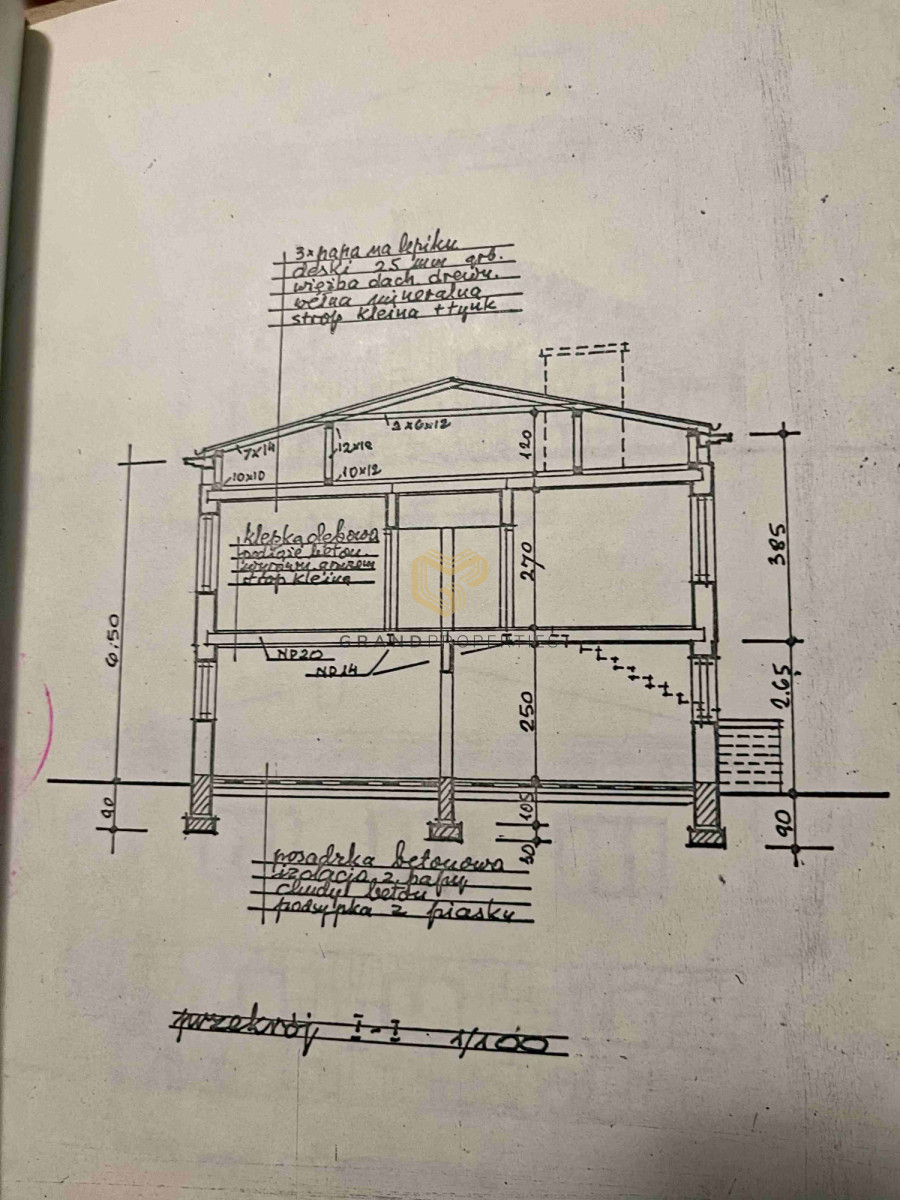 3×papa na lepiku
deski 25 mm grb.
więźba dach drewn.
wełna mineralna
strop kleina + tynk
2×6×12
7×14
12×12
10×10
10×12
120
klepka dębowa
podłoże beton
strop kleina
270
385
6.50
GRANDPROPERTIES
NP20
NP14
250
2.65
90
105
30
90
posadzka betonowa
izolacja z papy
chudy beton
podsypka z piasku
przekrój I-I 1/100